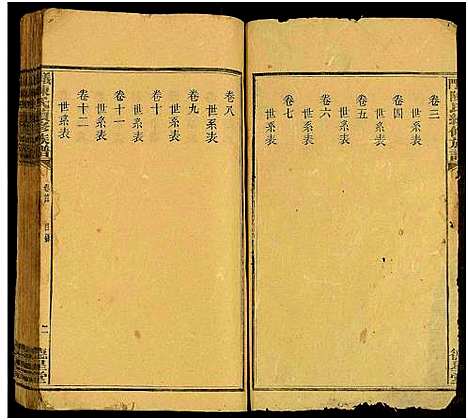 卷三
世系表
卷四
世系表
卷五
世系表
卷六
世系表
卷七
世系表
卷八
世系表
卷九
世系表
卷十
世系表
卷十一
世系表
卷十二
世系表
陳氏續修族譜
卷首
目錄
二
德星堂